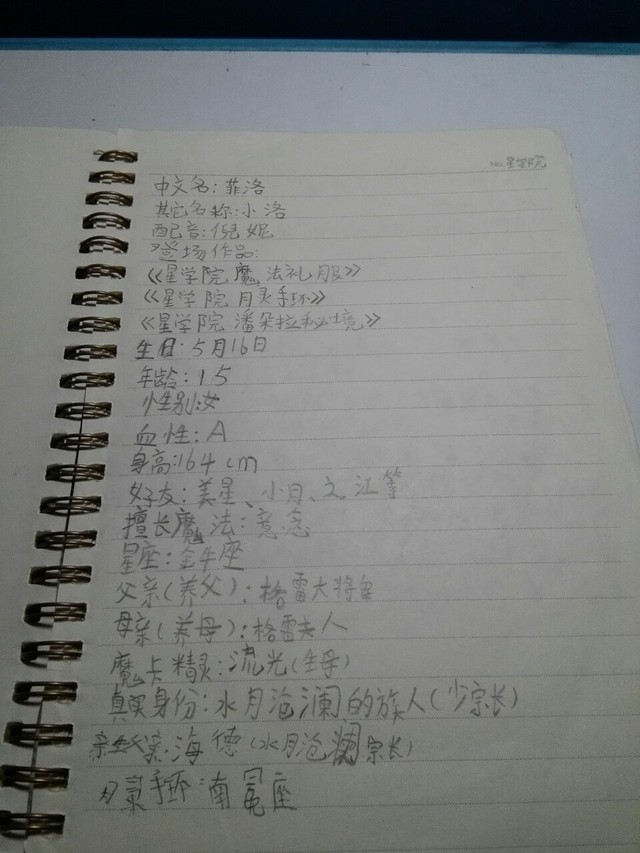 No. 星学院
中文名:菲洛
其它名称:小洛
配音:倪妮
登场作品:
《星学院魔法礼服》
《星学院月灵手环》
《星学院潘朵拉秘境》
生日:5月16日
年龄:15
性别:女
血性:A
身高:164cm
好友:美星、小月、文江等
擅长魔法:意念
星座:金牛座
父亲(养父):格雷大将军
母亲(养母):格雷夫人
魔卡精灵:流光(生母)
真实身份:水月沧澜的族人(少宗长)
海德(水月沧澜宗长)
月灵手环:南冕座